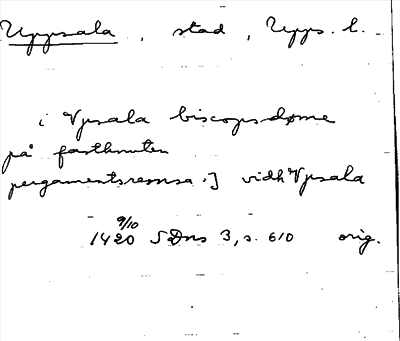 Uppsala, stad, Upps. l.
i Vpsala biscopsdøme
på fastknuten
pergamentsremsa.] vidh Vpsala
9/10
1420 SDns 3, s. 610 orig.